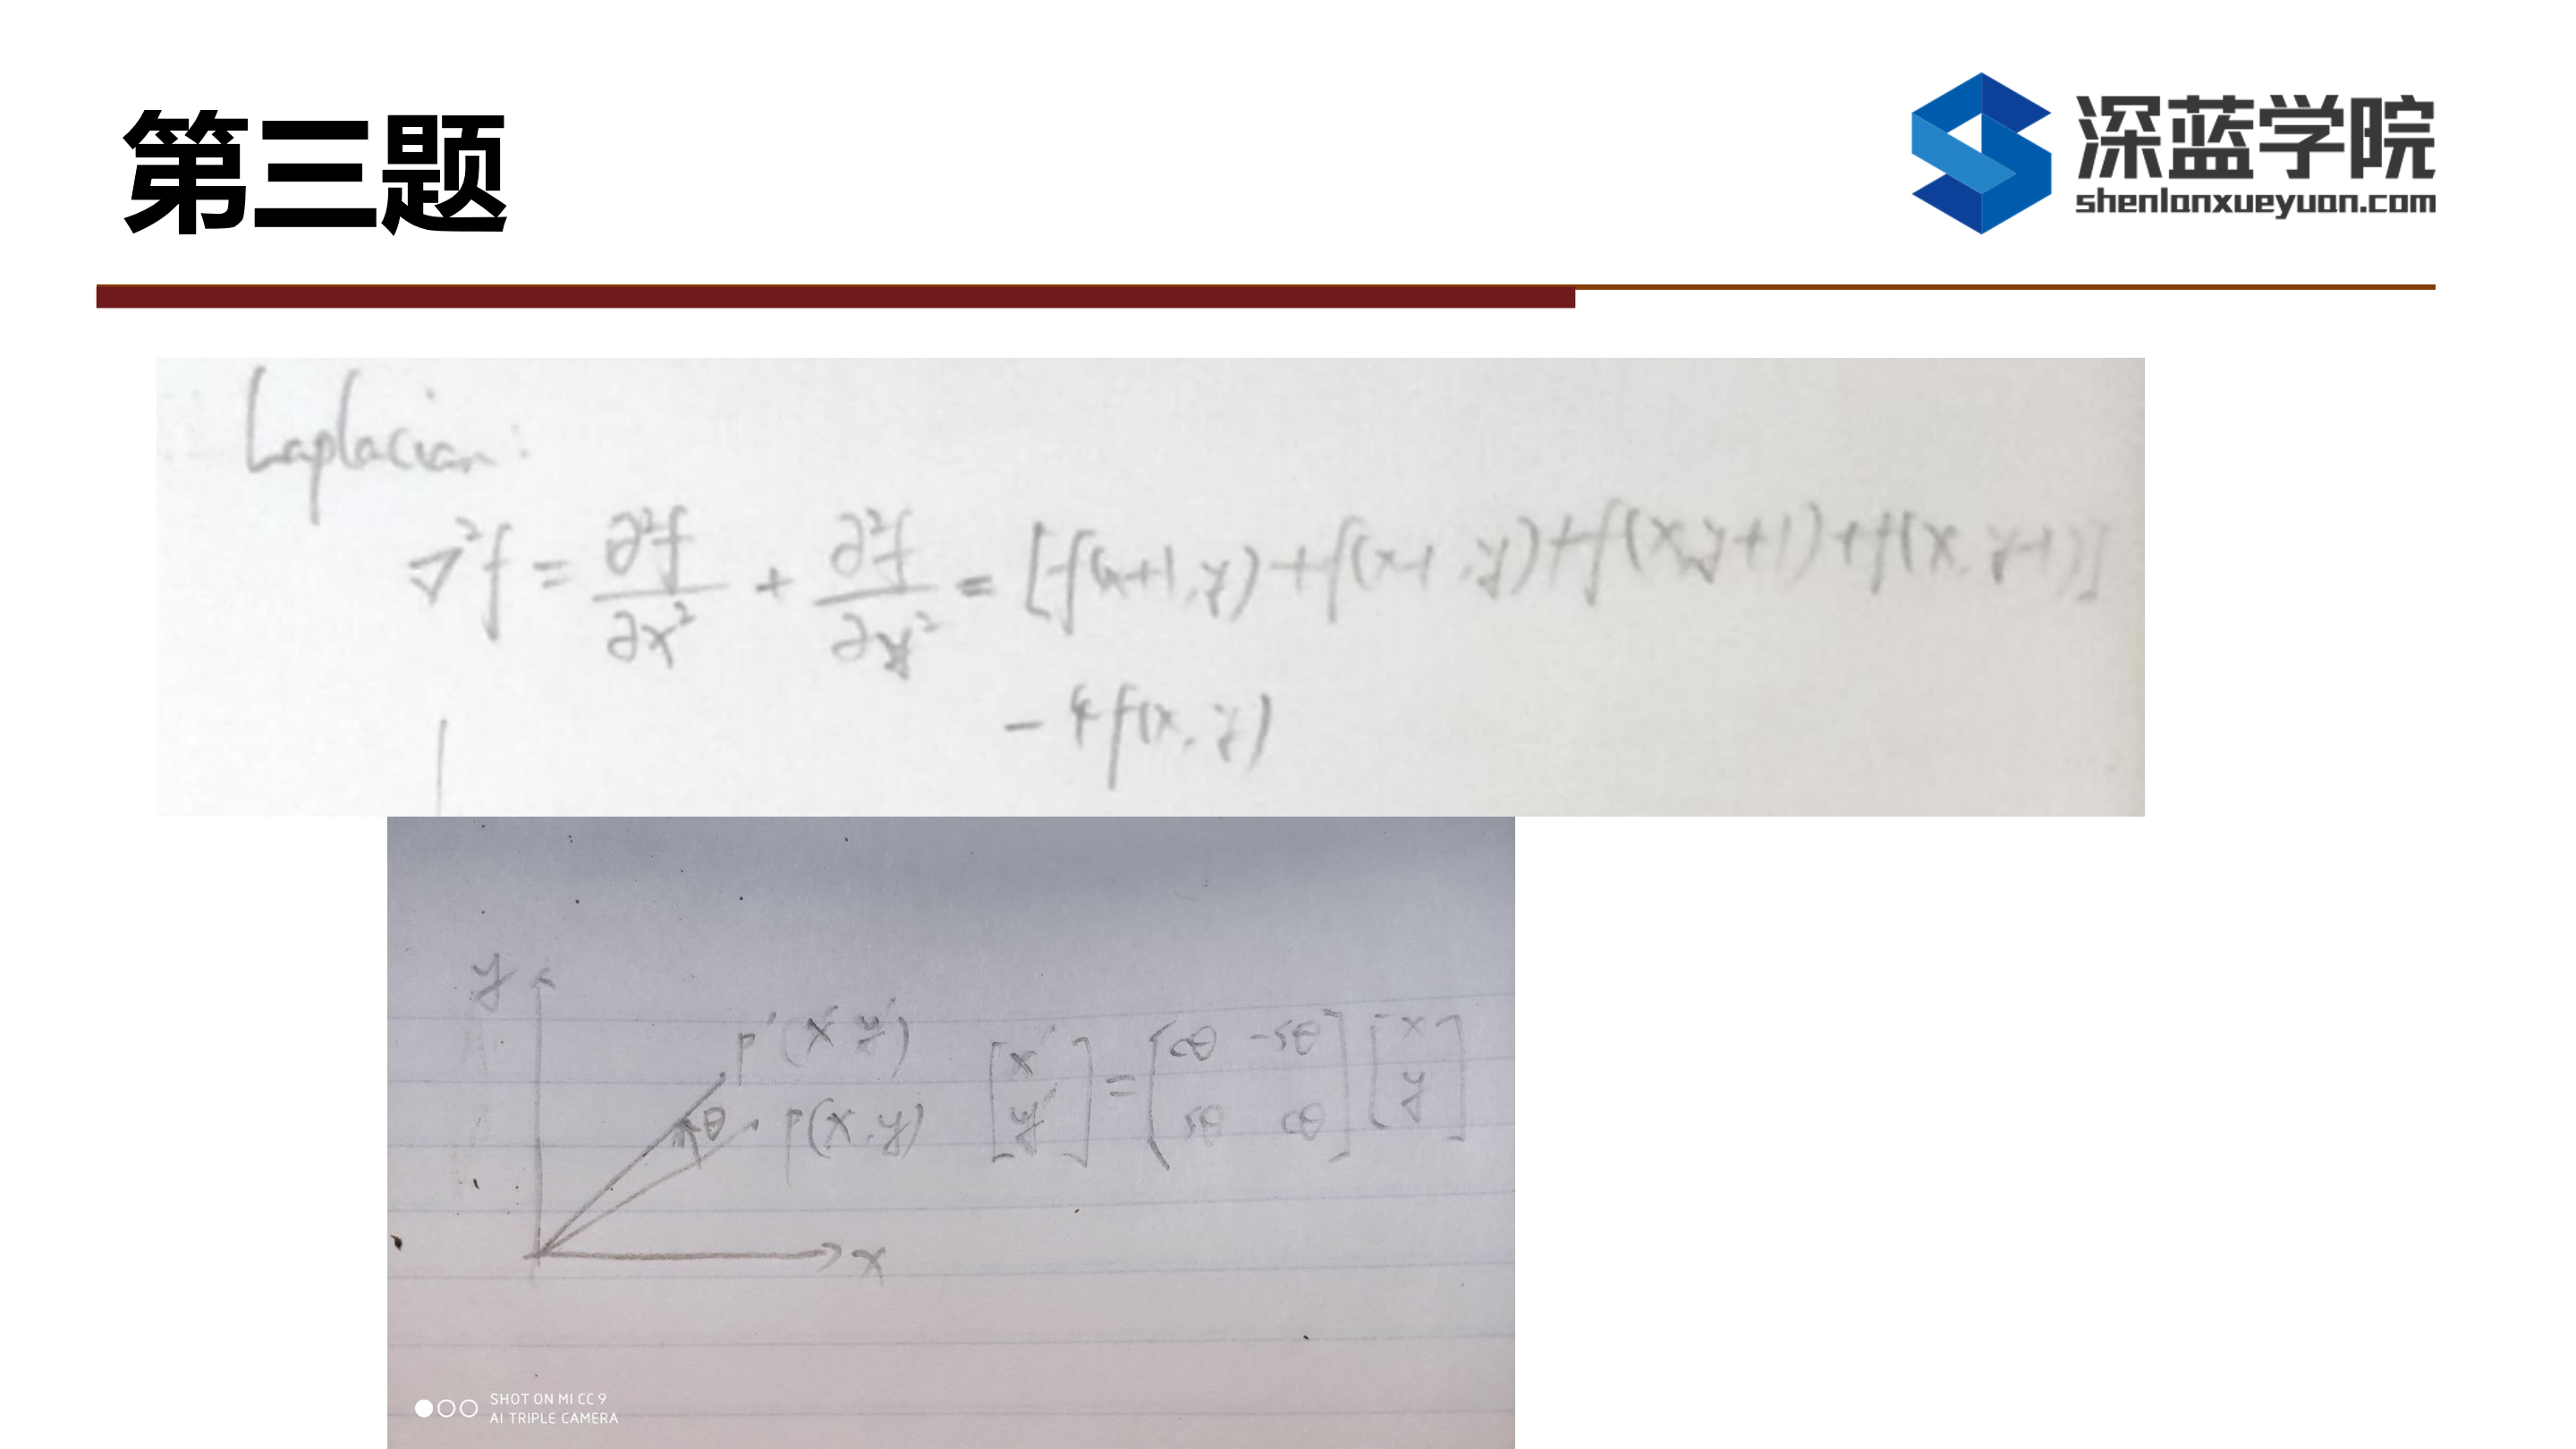 第三题
深蓝学院
shenlanxueyuan.com
Laplacian:
∇²f = ∂²f/∂x² + ∂²f/∂y² = [f(x+1,y)+f(x-1,y)+f(x,y+1)+f(x,y-1)]
- 4f(x,y)
y
p'(x' y')
[x' y'] = [cθ -sθ sθ cθ] [x y]
θ
p(x,y)
x
SHOT ON MI CC 9
AI TRIPLE CAMERA